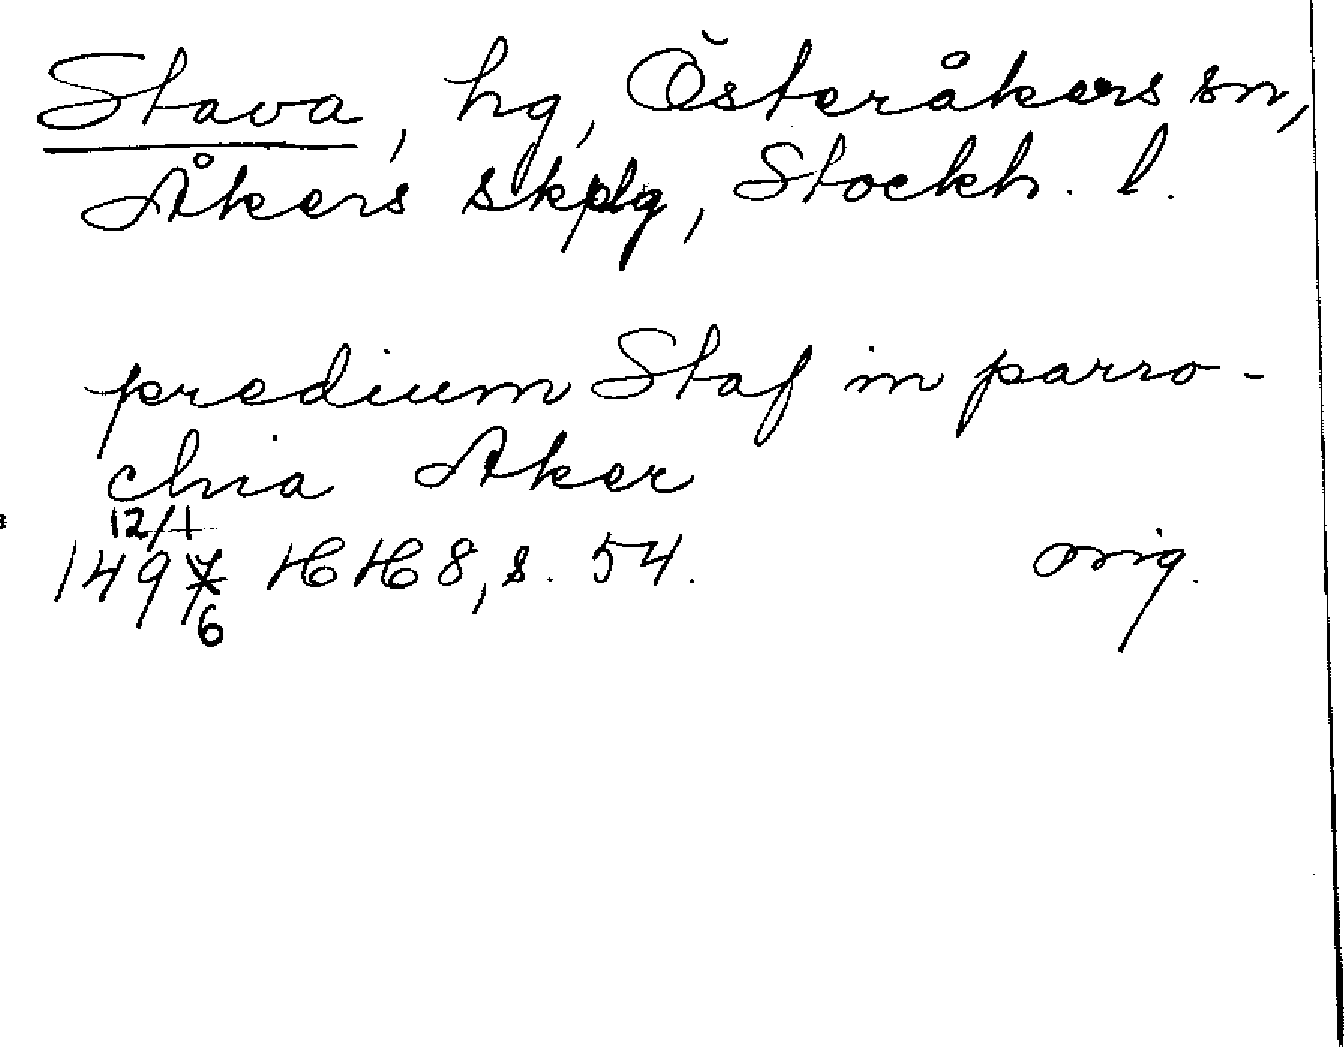 Stava, hg, Österåkers sn,
Åkers skplg, Stockh. l.
predium Staf in parro-
chia Aker
12/1
1497 HH 8, s. 54. orig.
6